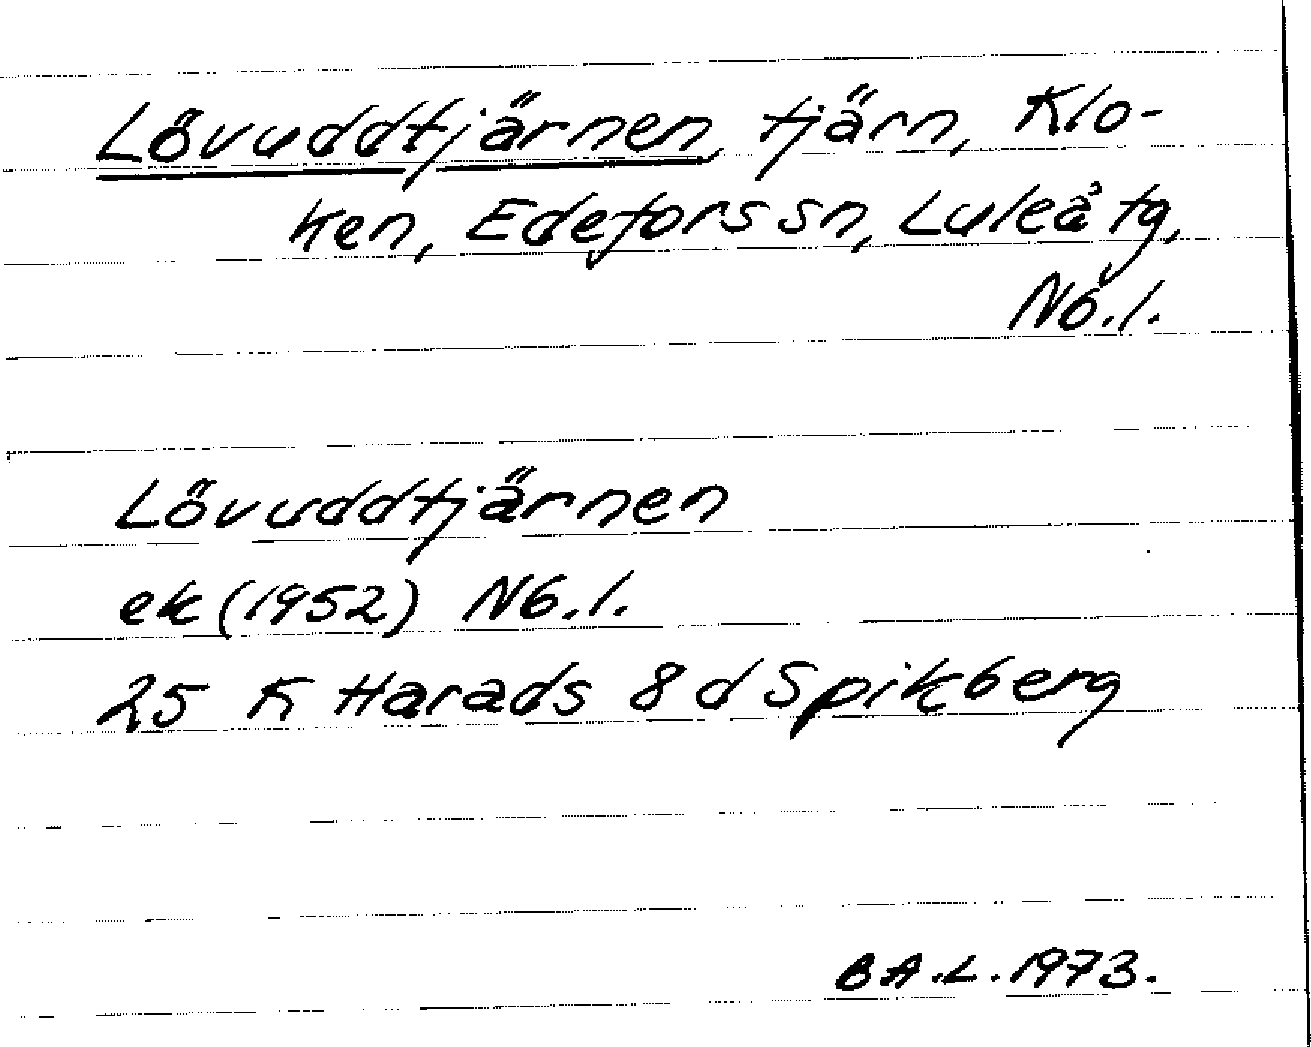 Lövuddtjärnen, tjärn, Klo-
ken, Edefors sn, Luleå tg,
Nb.l.
Lövuddtjärnen
ek (1952) Nb.l.
25 K Harads 8 d Spikberg
B A.L. 1973.